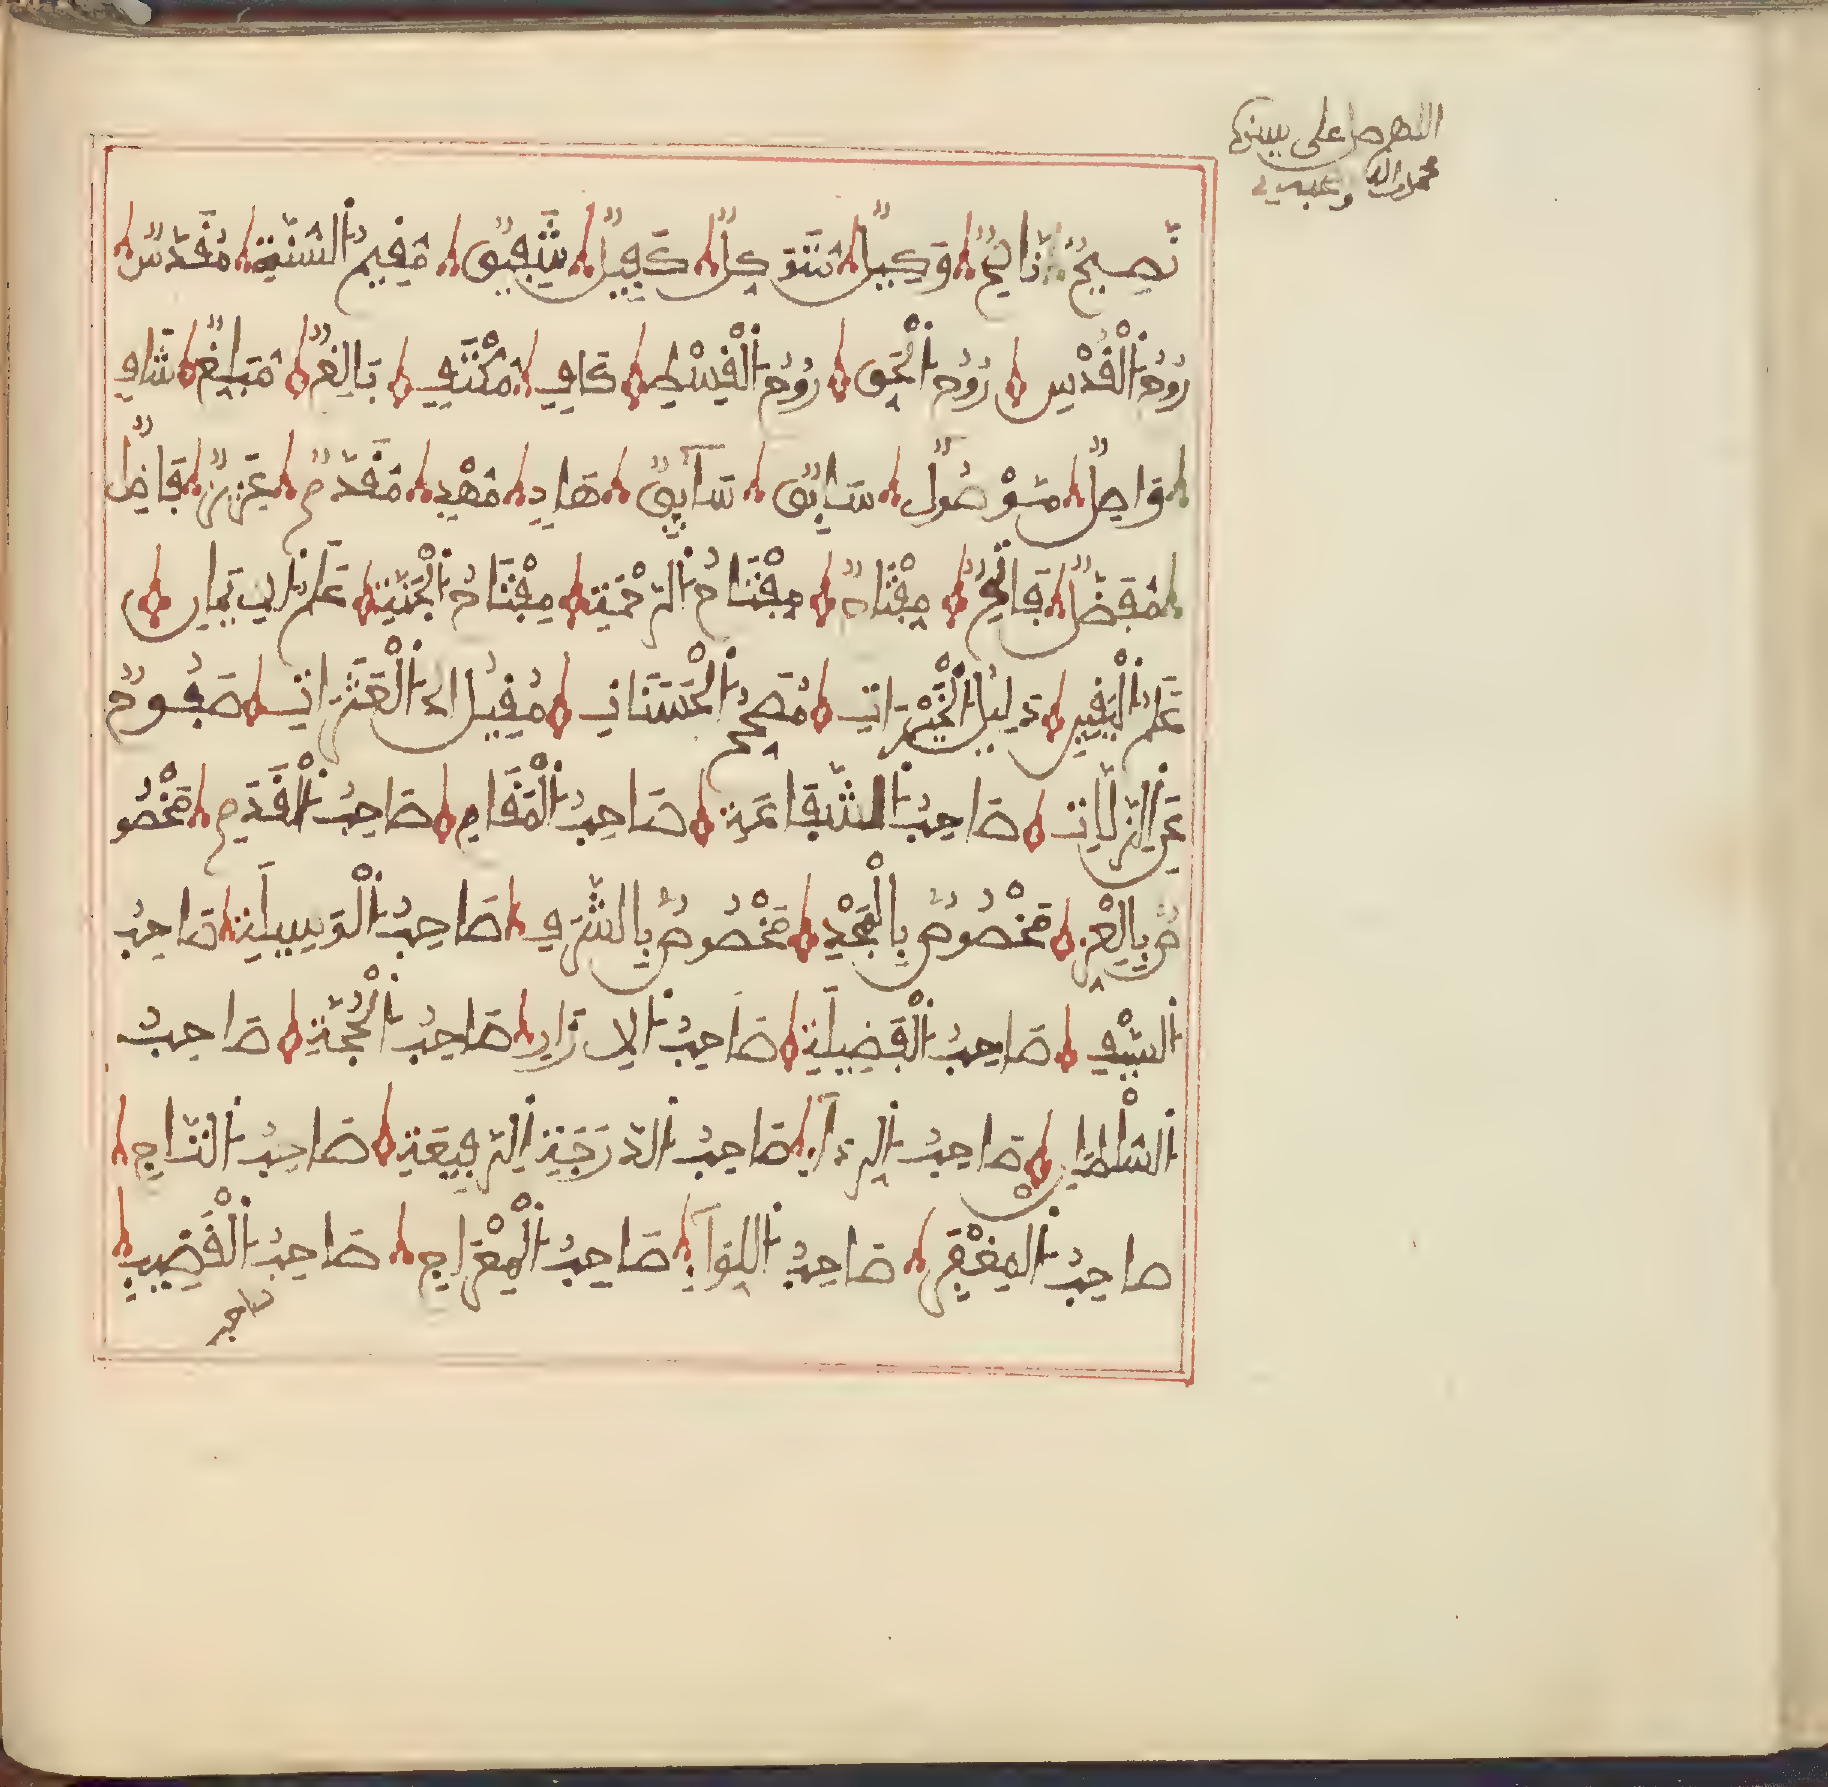 اللهم صل على سيدنا
محمد وآله وصحبه
نَصِيحٌ نَاصِحٌ وَكِيلٌ مُتَوَكِّلٌ كَفِيلٌ شَفِيقٌ مُقِيمُ السُّنَّةِ مُقَدَّسٌ
رُوحُ الْقُدُسِ رُوحُ الْحَقِّ رُوحُ الْقِسْطِ كَافٍ مُكْتَفٍ بَالِغٌ مُبَلِّغٌ شَافٍ
وَاصِلٌ مَوْصُولٌ سَابِقٌ سَآئِقٌ هَادٍ مُهْدٍ مُقَدَّمٌ عَزِيزٌ فَاضِلٌ
مُفَضَّلٌ فَاتِحٌ مِفْتَاحٌ مِفْتَاحُ الرَّحْمَةِ مِفْتَاحُ الْجَنَّةِ عَلَمُ الِايمَانِ
عَلَمُ الْيَقِينِ دَلِيلُ الْخَيْرَاتِ مُصَحِّحُ الْحَسَنَاتِ مُقِيلُ الْعَثَرَاتِ صَفُوحٌ
عَنِ الزَّلَّاتِ صَاحِبُ الشَّفَاعَةِ صَاحِبُ الْمَقَامِ صَاحِبُ الْقَدَمِ مَخْصُو
صٌ بِالْعِزِّ مَخْصُوصٌ بِالْمَجْدِ مَخْصُوصٌ بِالشَّرَفِ صَاحِبُ الْوَسِيلَةِ صَاحِبُ
السَّيْفِ صَاحِبُ الْفَضِيلَةِ صَاحِبُ الِازَارِ صَاحِبُ الْحُجَّةِ صَاحِبُ
السُّلْطَانِ صَاحِبُ الرِّدَآءِ صَاحِبُ الدَّرَجَةِ الرَّفِيعَةِ صَاحِبُ التَّاجِ
صَاحِبُ الْمِغْفَرِ صَاحِبُ اللِّوَآءِ صَاحِبُ الْمِعْرَاجِ صَاحِبُ الْقَضِيبِ
صاحب